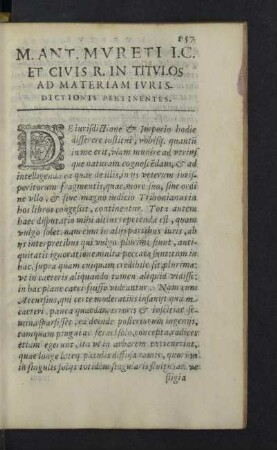 157
M. ANT. MVRETI I.C.
ET CIVIS R. IN TITVLOS
AD MATERIAM IVRIS-
DICTIONIS PERTINENTES.
DE iurisdictione & Imperio hodie
disserere institui, vobisq. quantū
in me erit, viam munire ad vtrius
que naturam cognoscēdam, & ad
intelligenda ea quae de illis, in ijs veterum iuris-
peritorum fragmentis, quae, more suo, sine ordi
ne vllo, & sine magno iudicio Tribonianus in
hos libros congessit, continentur. Tota autem
haec disputatio mihi altius repetenda est, quam
vulgo solet. nam cum in alijs partibus iuris, ab
ijs interpretibus qui vulgo plurimi sunt, anti-
quitatis ignoratione multa peccata
hac, supra quam cuiquam credibile sit, plurima:
vt in caeteris aliquando tamen aliquid vidisse:
in hac plane caeci fuisse videantur. Nam
Accursius, qui certe moderatius insaniit quam
caeteri, pauca quaedam erroris & inscitiae se-
mina sparsisset, ea deinde posteriorum ingenijs,
tamquam pinguiac feraci solo, concepta, radices
etiam egerunt, ita vt in arborem
quae longe lateq. patulis diffusa ramis,
in singulis folijs totidem singularis
stigia